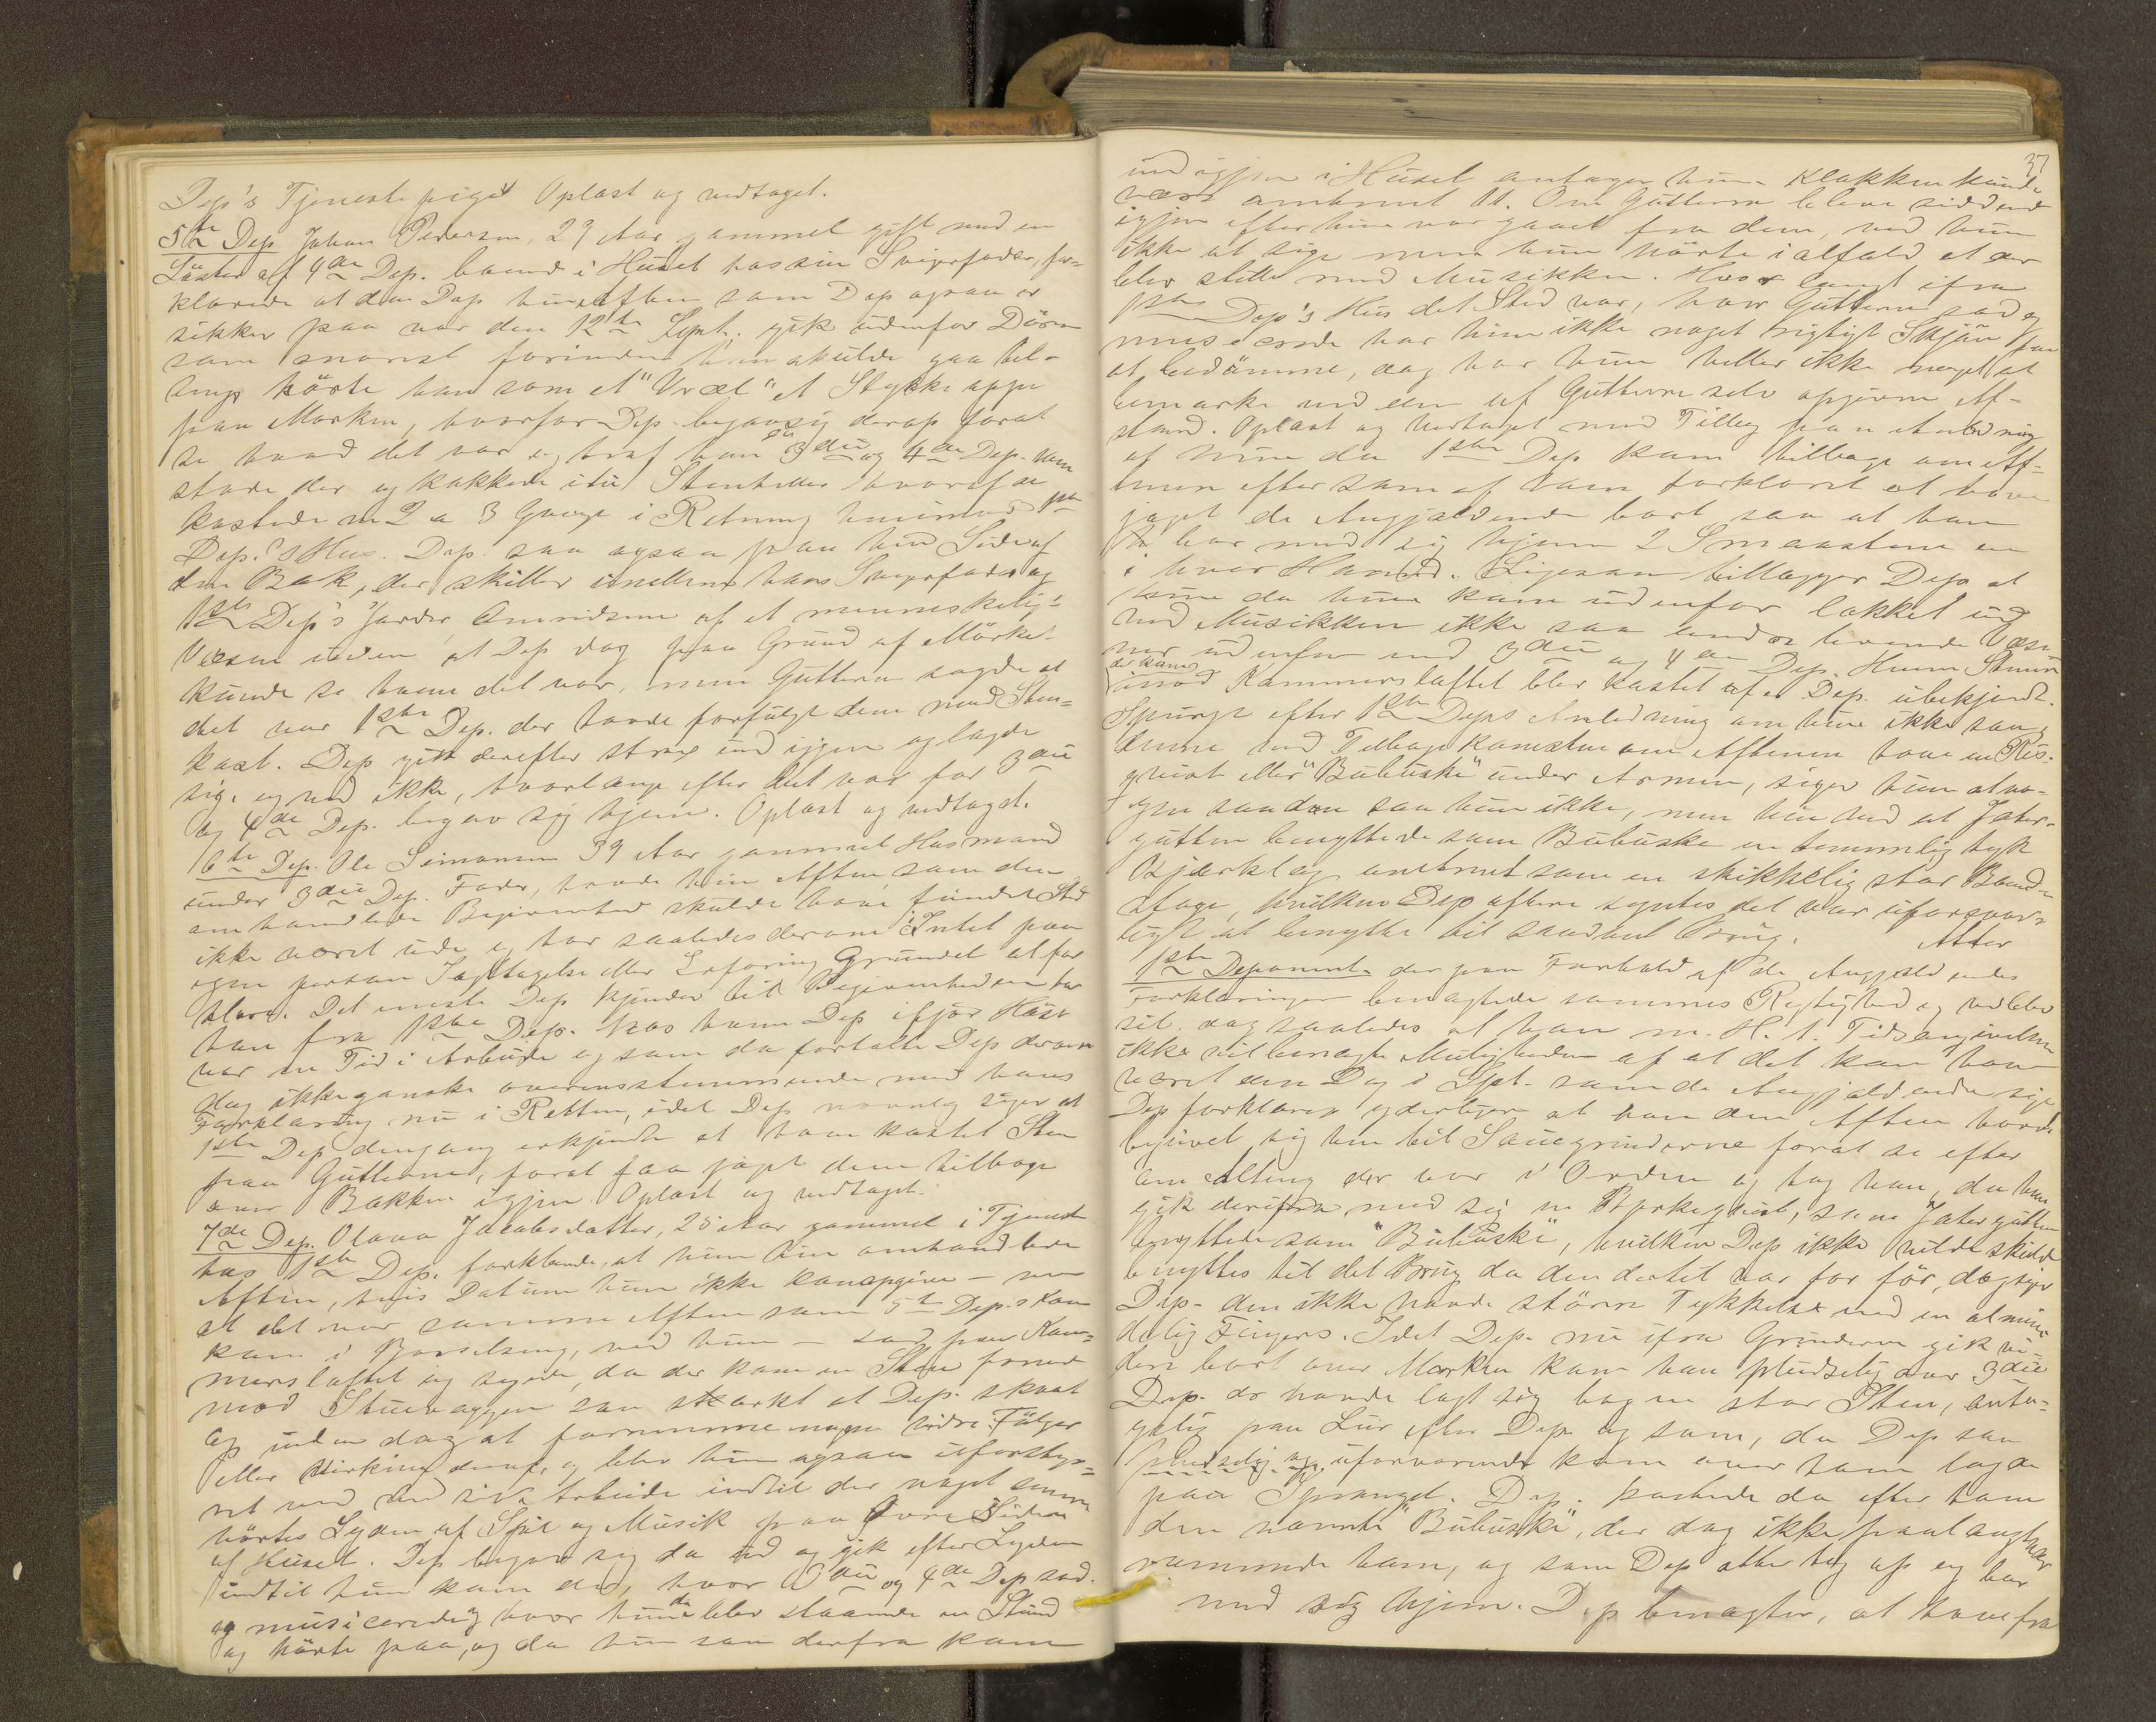 Dep's Tjenestepiget Oplæst og vedtaget.
5te Dep Johan Pedersen, 29 Aar gammel gift med en
Søster af 4de Dep. boende i Huset hos sin Svigerfader, for-
klarede at den Dep hin Aften som Dep ogsaa er
sikker paa var den 12te Sept. gik udenfor Døren
som snarest forinden han skulde gaa til-
sengs hørte han som et "Vræl" et Stykke oppe
paa Marken, hvorfor Dep begav sig derop forat
se hvad det var og traf han 3die og 4de Dep. som
stode der og kakkede itu Stenheller hvoraf de
kastede en 2 a 3 Gange i Retning henimod 1ste
Dep.'s Hus. Dep. saa ogsaa paa hin Side af
den Bæk, der skiller imellem hans Svigerfaders og
1ste Dep's Jorder Omridsene af et menneskelig-
Væsen uden at Dep dog paa Grund af Mørket
kunde se hvem det var, men Gutterne sagde at
det var 1ste Dep. der havde forfulgt dem med Sten-
kast. Dep gik derefter strax ind igjen og lagde
sig, og ved ikke, hvorlænge efter det var før 3die
og 4de Dep. begav sig hjem. Oplæst og vedtaget.
6te Dep. Ole Simonsen 39 Aar gammel Husmand
under 3die Dep. Fader, havde hin Aften, som den
omhandlede Begivenhed skulde have fundet Sted
ikke været ude og har saaledes derom Intet paa
egen person Iagttagelse eller Erfaring Grundet at for
klare. Det eneste Dep kjender til Begivenheden har
han fra 1ste Dep. hos hvem Dep ifjor Høst
var en Tid i Arbeide og som da fortalte Dep derom
dog ikke ganske overensstemmende med hans
Forklaring nu i Retten, idet Dep nemlig siger at
1ste Dep dengang erkjendte at have kastet Sten
paa Gutterne, forat faa jaget dem tilbage
over Bækken igjen Oplæst og vedtaget.
7de Dep. Olava Jacobsdatter, 25 Aar gammel i Tjeneste
hos 1ste Dep. forklarede, at hun hin omhandlede
Aften, hvis Datum hun ikke kan opgive – men
at det var samme Aften som 5te Dep.s Kone
kom i Barselseng, ved hun – sad paa Kam-
mersloftet og syede, da der kom en Sten forud
mod Stuevæggen saa stærkt at Dep. skvat
op uden dog at fornemme nogen videre Følger
eller Virkning deraf, og blev hun ogsaa uforstyr-
ret ved sit Arbeide indtil der noget senere
hørtes Lyden af Spil og Musik paa Øvre Siden
af Huset. Dep begav sig da ud og gik efter Lyden
indtil hun kom did, hvor 3die og 4de Dep sad.
og musicerede og hvor hun da blev staaende en Stund
og hørte paa, og da hun saa derfra kom
37
ind igjen i Huset antager hun Klokken kunde
være omtrent 11. Om Gutterne bleve siddende
igjen efter hun var gaaet fra dem, ved hun
ikke at sige men hun hørte ialfald at der
blev stille med Musikken. Hvor langt ifra
1ste Dep's Hus det Sted var, hvor Gutterne sad og
musicerede har hun ikke noget rigtigt Skjøn paa
at bedømme, dog har hun heller ikke noget at
bemærke ved den af Gutterne selv opgivne Af-
stand. Oplæst og Vedtaget med Tillæg paa Anledning
af hun da 1ste Dep kom tilbage om Af-
tenen efter som af ham forklaret at have
jaget de Angjældende bort saa at han
bar med sig hjem 2 Smaastene en
i hver Haand. Ligesom tillægger Dep at
hun da hun kom udenfor lokket ud
ved Musikken ikke saa andre levende Væsen
ner udenfor end 3die og 4de Dep. Hvem Stenen
der kom imod Kammersloftet blev kastet af er Dep. ubekjendt.
Spurgt efter 1ste Deps Anledning om hun ikke saa,
denne ved Tilbagekomsten om Aftenen have en Ris-
qvist eller "Bubuske" under Armen, siger hun at no-
gen saadan saa hun ikke, men hun ved at Jæter-
gutten benyttede som Bubuske en temmelig tyk
Bjørklæg omtrent som en skikkelig stor Baand-
stage, hvilken Dep oftere syntes det var uforsvar-
ligt at benytte til saadant Brug. Atter
1ste Deponent der paa Forhold af de Angjældendes
Forklaringer benægtede sammes Rigtighed og vedblev
sit. dog saaledes at han m. H. t. Tidsangivelsen
ikke vil benægte Muligheden af at det kan have
været den Dag i Sept. som de Angjældende sige
Dep forklarer yderligere at han den Aften havde
begivet sig hen til Sauegrinderne forat se efter
om Alting der var i Orden og tog han, da han
gik derifra med sig en Birkeqvist, som Jætergutten
benyttede som "Bubuske", hvilken Dep ikke vilde skulde
benyttes til det Brug da den dertil var for før, dog siger
Dep. den ikke havde større Tykkelse end en almin-
delig Fingers. Idet Dep. nu ifra Grinderne gik vi-
dere bort over Marken kom han pludselig over 3die
Dep. der havde lagt sig bag en stor Sten, anta-
gelig paa Lur efter Dep og som, da Dep saa
pludselig og uforvarende kom over ham lagde
paa Sprang. Dep. kastede da efter ham
den nævnte "Bubuske", der dog ikke paalangtnær
rammede ham, og som Dep atter tog op og bar
med sig hjem. Dep benægter, at have fra